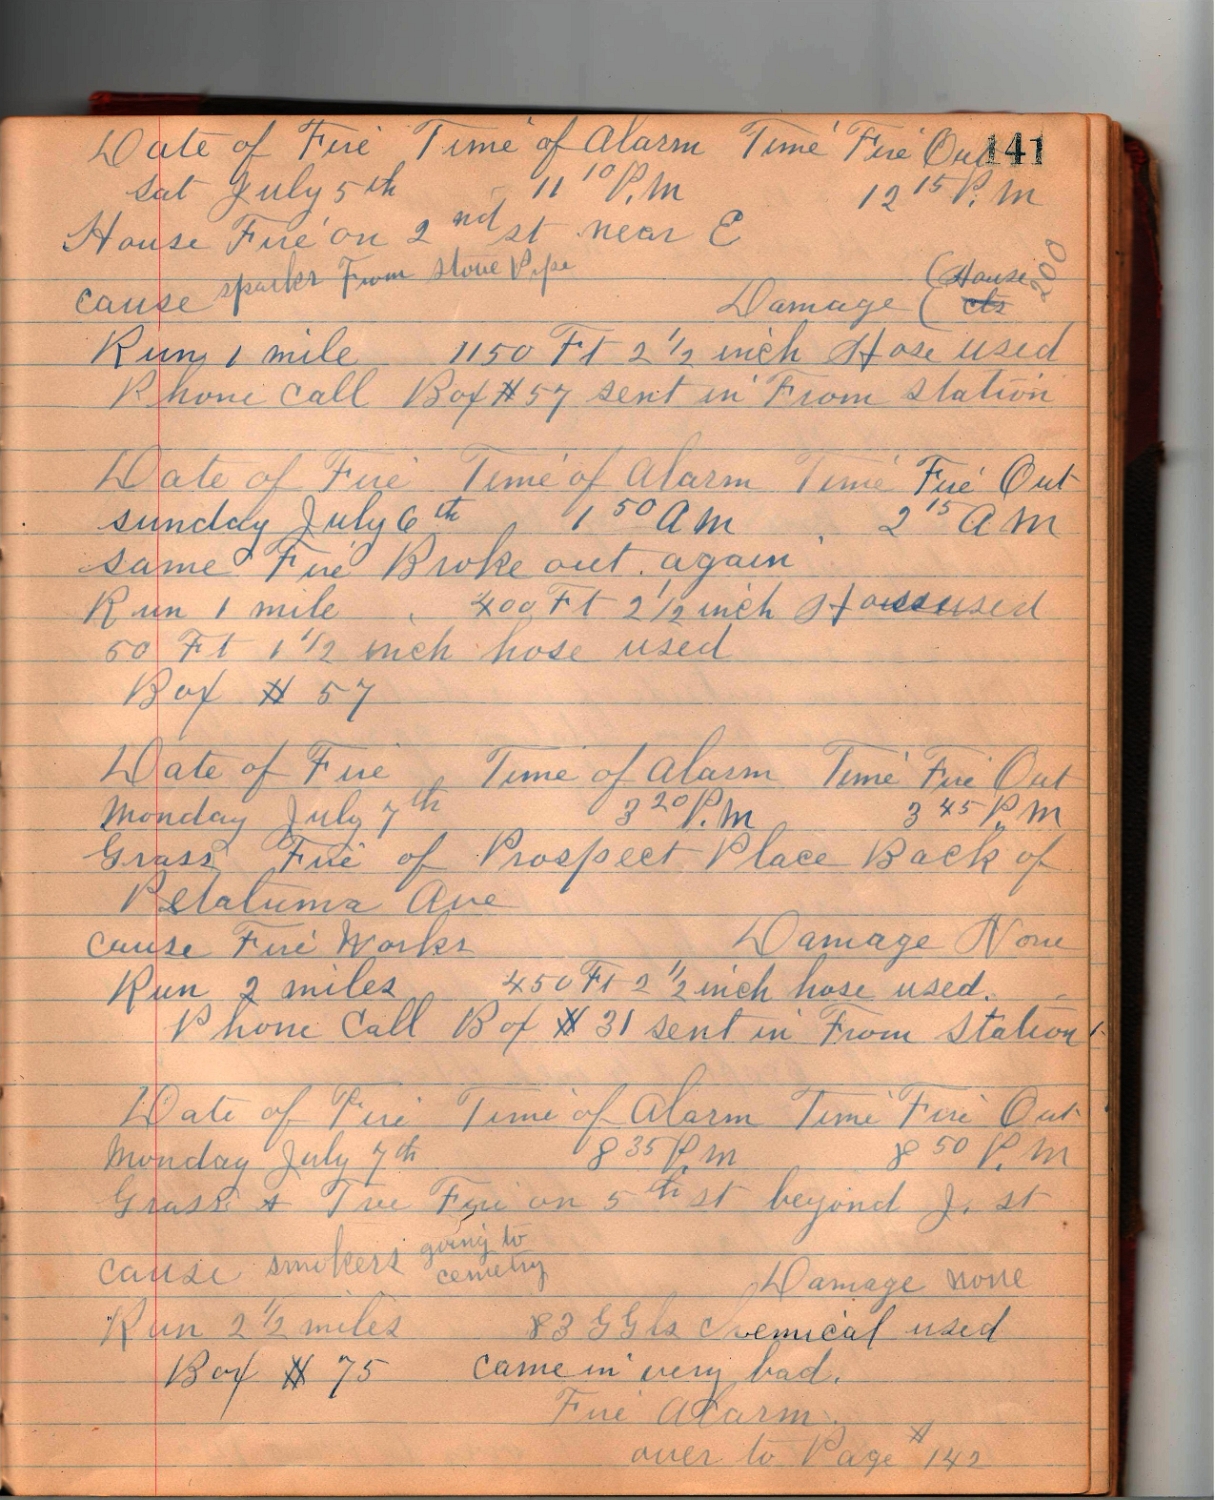 141
Date of Fire Time of Alarm Time Fire Out
Sat July 5th 11 10 P.M 12 15 P.M
House Fire on 2nd st near E
cause sparks From stove Pipe Damage (House 200
( cts
Run 1 mile 1150 Ft 2 1/2 inch Hose used
Phone Call Box # 57 sent in From Station
Date of Fire Time of Alarm Time Fire Out
Sunday July 6th 1 50 AM 2 15 AM
same Fire Broke out again
Run 1 mile 400 Ft 2 1/2 inch Hose used
50 Ft 1 1/2 inch hose used
Box # 57
Date of Fire Time of Alarm Time Fire Out
Monday July 7th 3 20 P.M 3 45 P.M
Grass Fire of Prospect Place Back of
Petaluma Ave
cause Fire Works Damage None
Run 2 miles 450 Ft 2 1/2 inch hose used.
Phone Call Box # 31 sent in From Station
Date of Fire Time of Alarm Time Fire Out
Monday July 7th 8 35 P.M 8 50 P.M
Grass & Tree Fire on 5th st beyond J. st
cause smokers going to
cemetry Damage none
Run 2 1/2 miles 83 GGls Chemical used
Box # 75 Came in very bad.
Fire Alarm
over to Page # 142